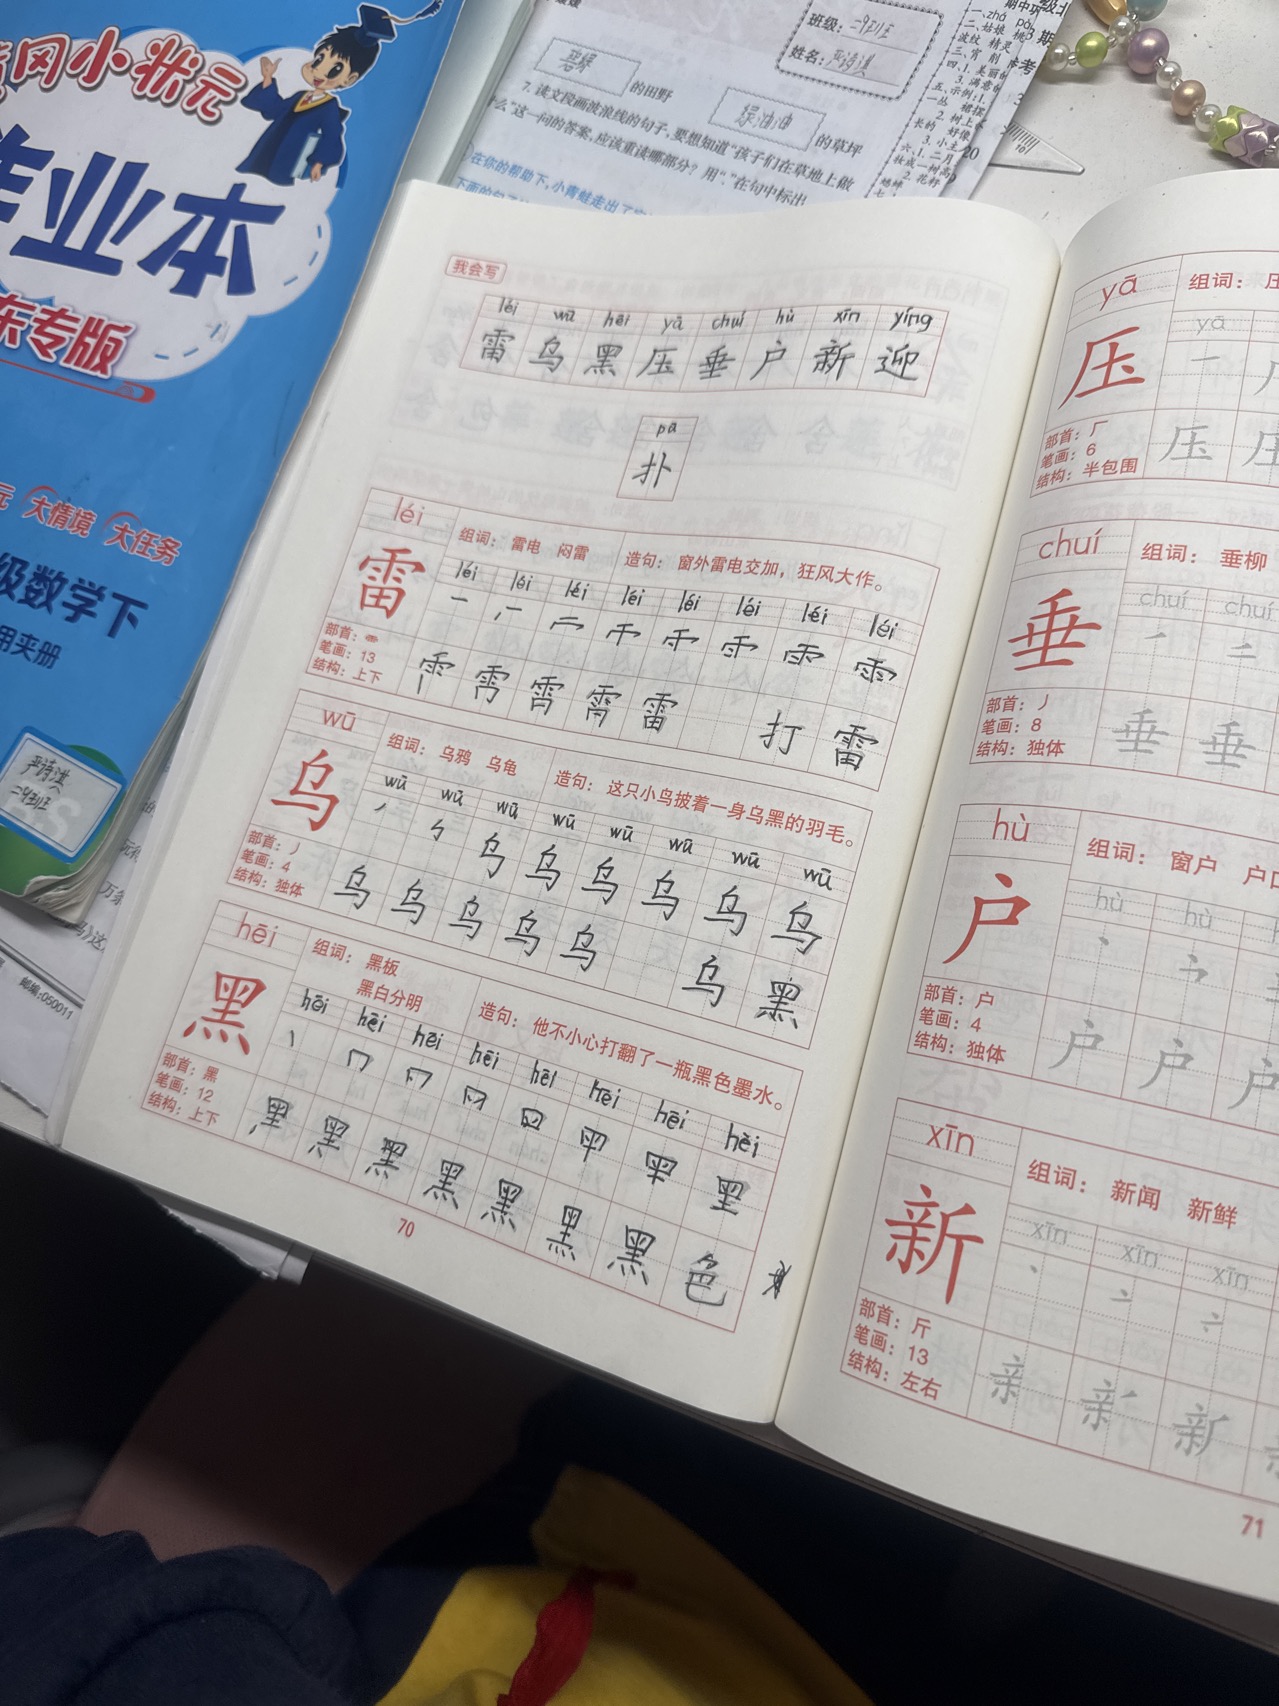 冈小状元
作业本
东专版
大情境 大任务
级数学下
用夹册
严诗淇
二.9班
邮编:050011
班级: 二.9班
姓名: 严诗淇
碧绿 的田野
绿油油 的草坪
7. 读文段画波浪线的句子,要想知道“孩子们在草地上做
什么”这一问的答案,应该重读哪部分?用“.”在句中标出
在你的帮助下,小青蛙走出了
我会写
léi wū hēi yā chuí hù xīn yíng
雷 乌 黑 压 垂 户 新 迎
pū
扑
léi
雷
组词: 雷电 闷雷
造句: 窗外雷电交加,狂风大作。
léi léi léi léi léi léi léi léi
部首: ⻗
笔画: 13
结构: 上下
雷 打 雷
wū
乌
组词: 乌鸦 乌龟
造句: 这只小鸟披着一身乌黑的羽毛。
wū wū wū wū wū wū wū wū
乌 乌 乌 乌 乌 乌
部首: 丿
笔画: 4
结构: 独体
乌 乌 乌 乌 乌 乌 黑
hēi
黑
组词: 黑板
黑白分明
造句: 他不小心打翻了一瓶黑色墨水。
hēi hēi hēi hēi hēi hēi hēi hēi
部首: 黑
笔画: 12
结构: 上下
黑 黑 黑 黑 黑 色
70
yā
压
组词:
yā
部首: 厂
笔画: 6
结构: 半包围
压
chuí
垂
组词: 垂柳
chuí chuí
部首: 丿
笔画: 8
结构: 独体
垂 垂
hù
户
组词: 窗户 户口
hù hù
部首: 户
笔画: 4
结构: 独体
户 户 户
xīn
新
组词: 新闻 新鲜
xīn xīn xīn
部首: 斤
笔画: 13
结构: 左右
新
71